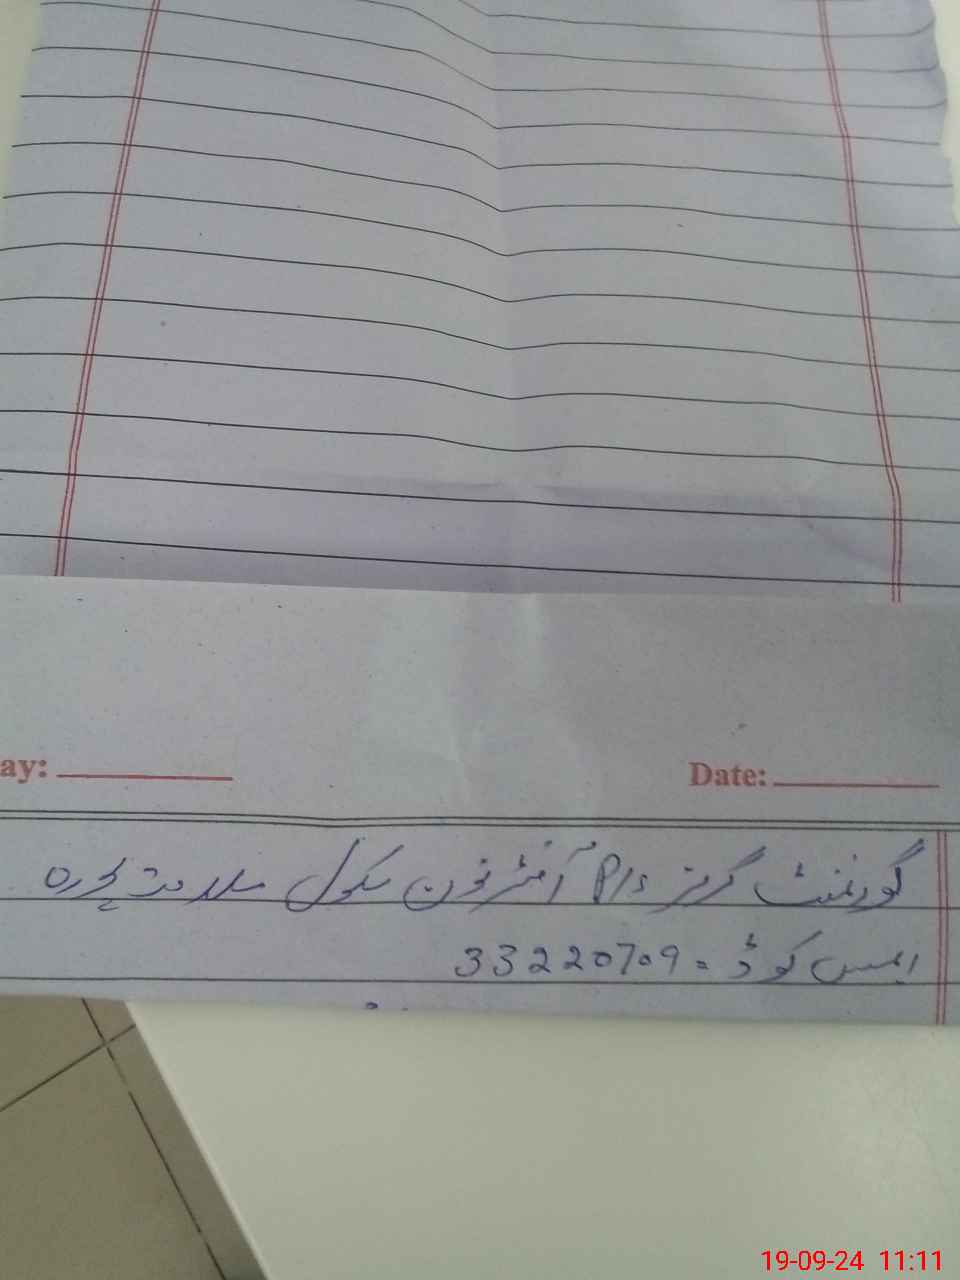 ay:
Date:
گورنمنٹ گرلز P/s آفٹرنون سکول سلامت پورہ
ایمس کوڈ = 33220709
19-09-24 11:11